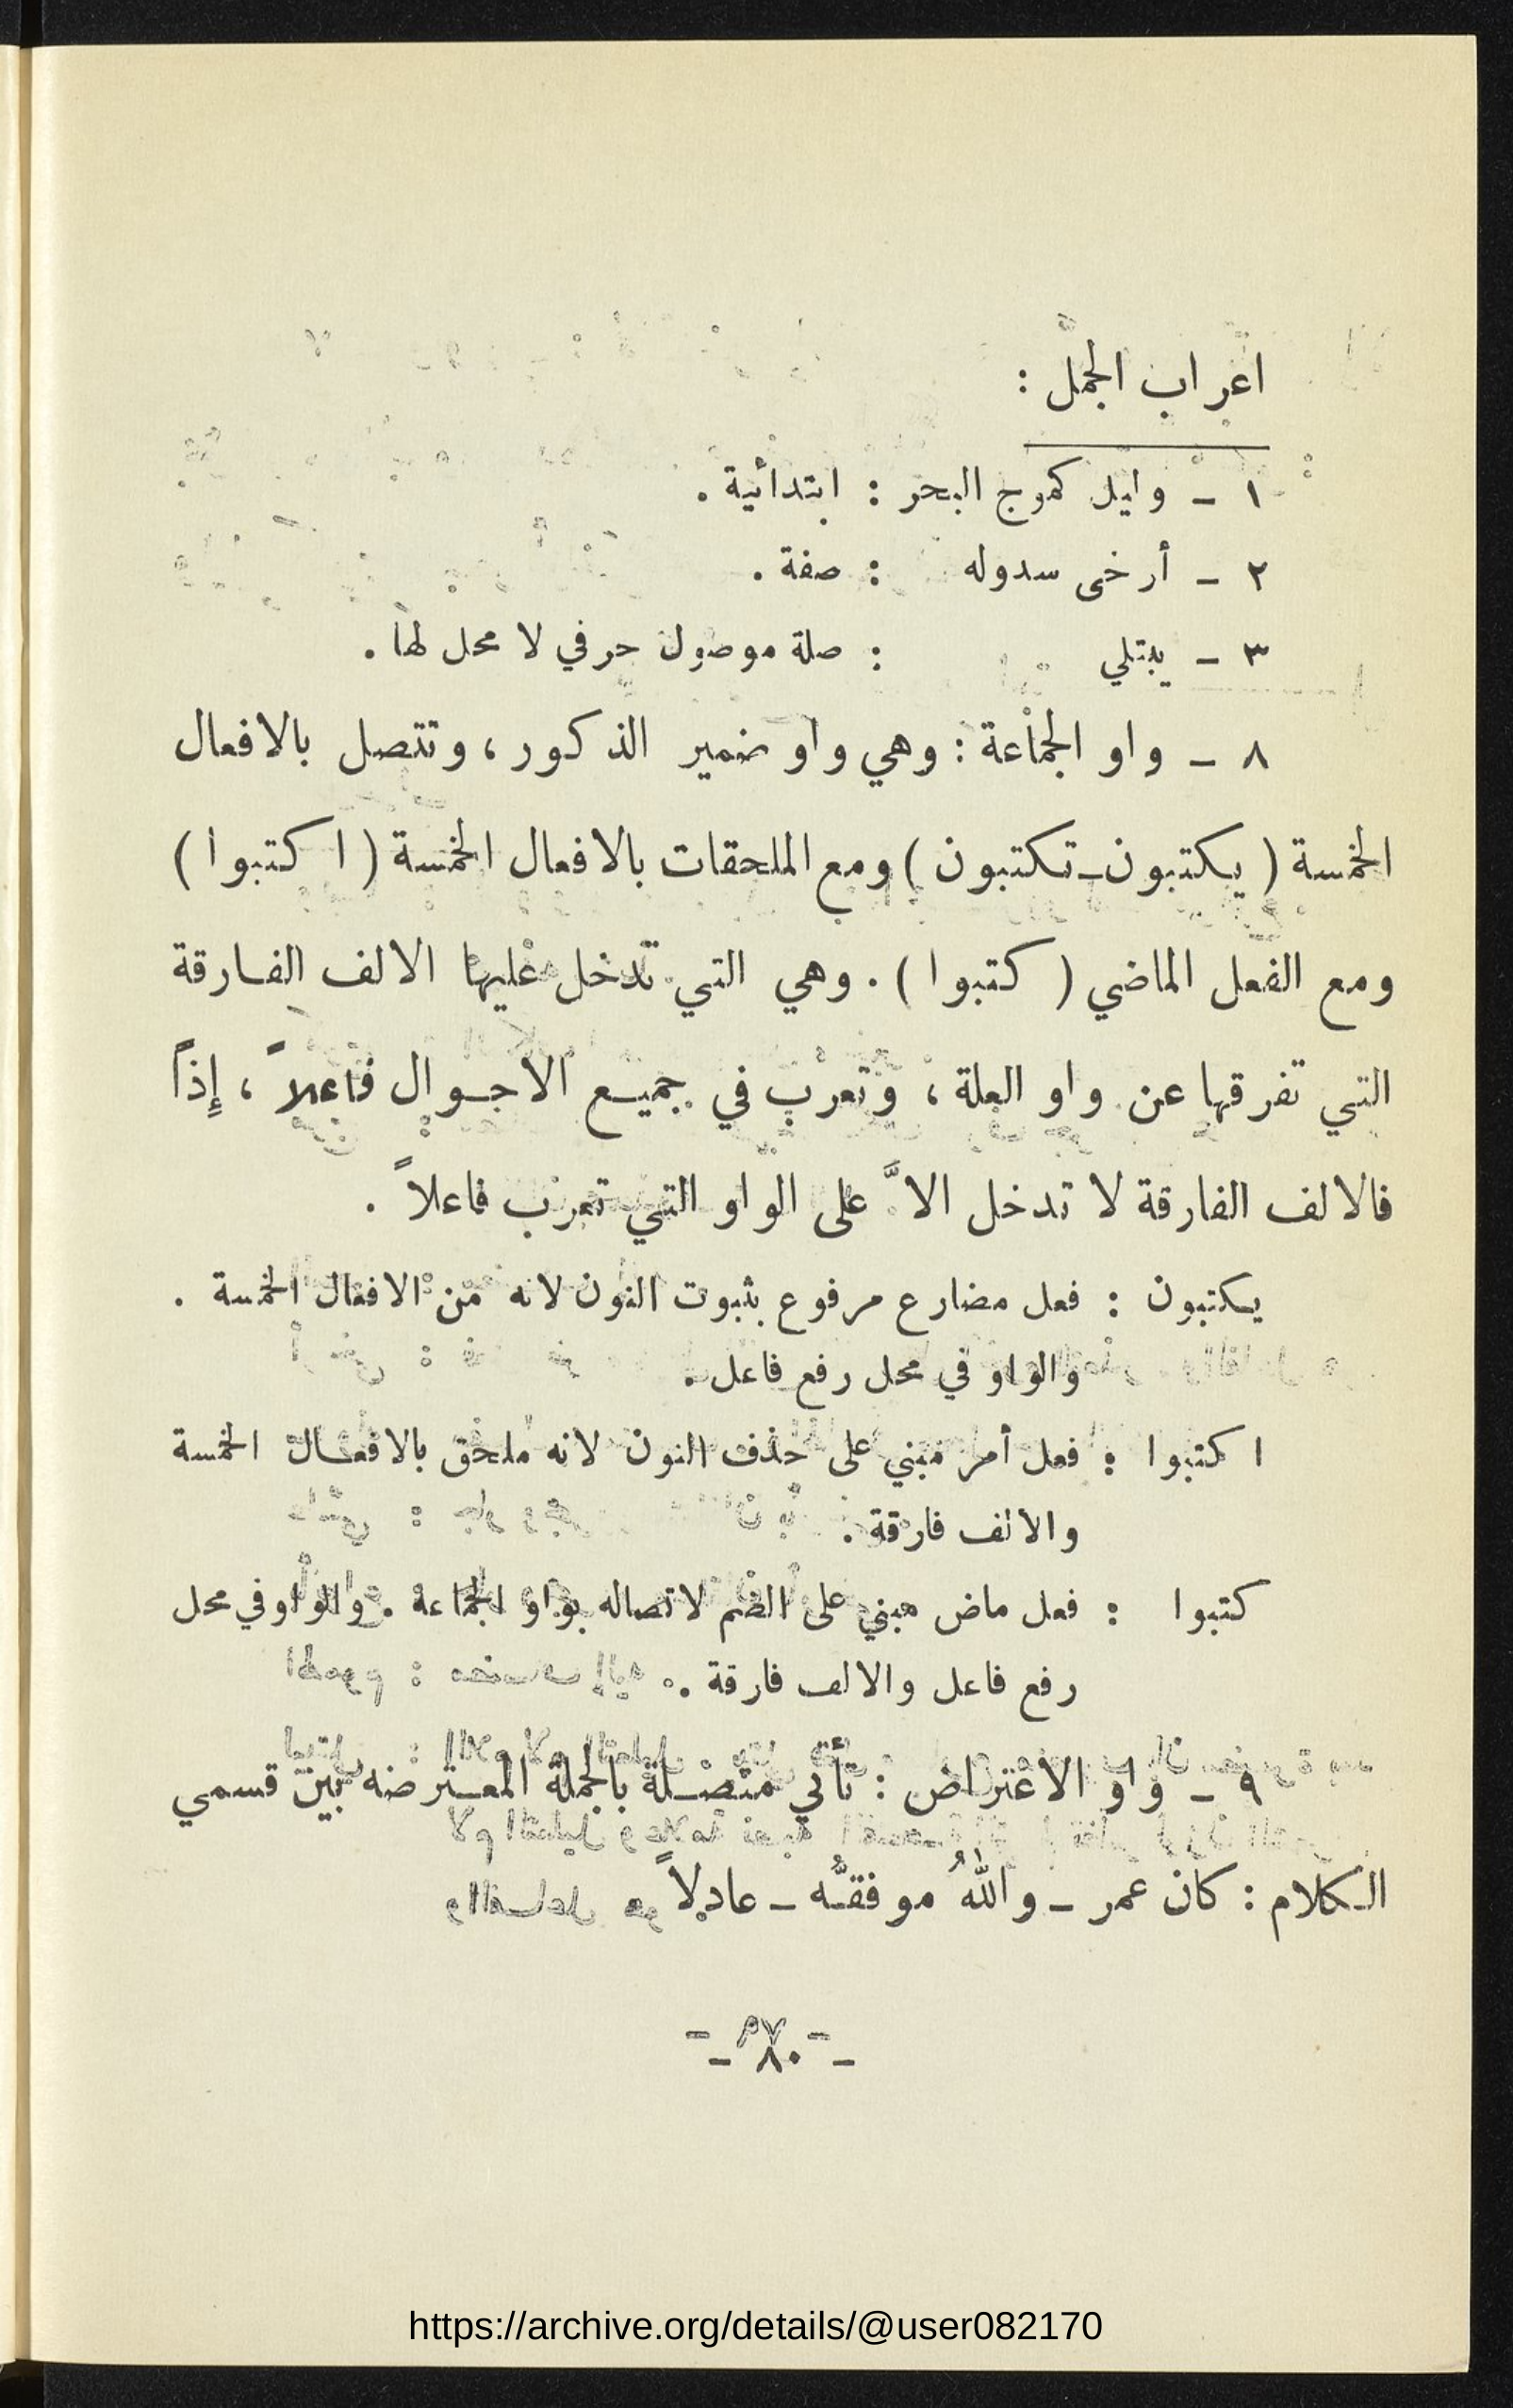 اعراب الجمل :
١ – وليل كموج البحر : ابتدائية .
٢ – أرخى سدوله : صفة .
٣ – يبتلي : صلة موصول حرفي لا محل لها .
٨ – واو الجماعة : وهي واو ضمير الذكور ، وتتصل بالافعال
الخمسة ( يكتبون – تكتبون ) ومع الملحقات بالافعال الخمسة ( اكتبوا )
ومع الفعل الماضي ( كتبوا ) . وهي التي تدخل عليها الالف الفارقة
التي تفرقها عن واو العلة ، وتعرب في جميع الاحوال فاعلاً ، إذاً
فالالف الفارقة لا تدخل الاَّ على الواو التي تعرب فاعلاً .
يكتبون : فعل مضارع مرفوع بثبوت النون لانه من الافعال الخمسة .
والواو في محل رفع فاعل .
اكتبوا : فعل أمر مبني على حذف النون لانه ملحق بالافعال الخمسة
والالف فارقة .
كتبوا : فعل ماض مبني على الضم لاتصاله بواو الجماعة . والواو في محل
رفع فاعل والالف فارقة .
٩ – واو الاعتراض : تأتي متصلة بالجملة المعترضه بين قسمي
الكلام : كان عمر – واللهُ موفقُّه – عادلاً
– ٨٠ –
https://archive.org/details/@user082170